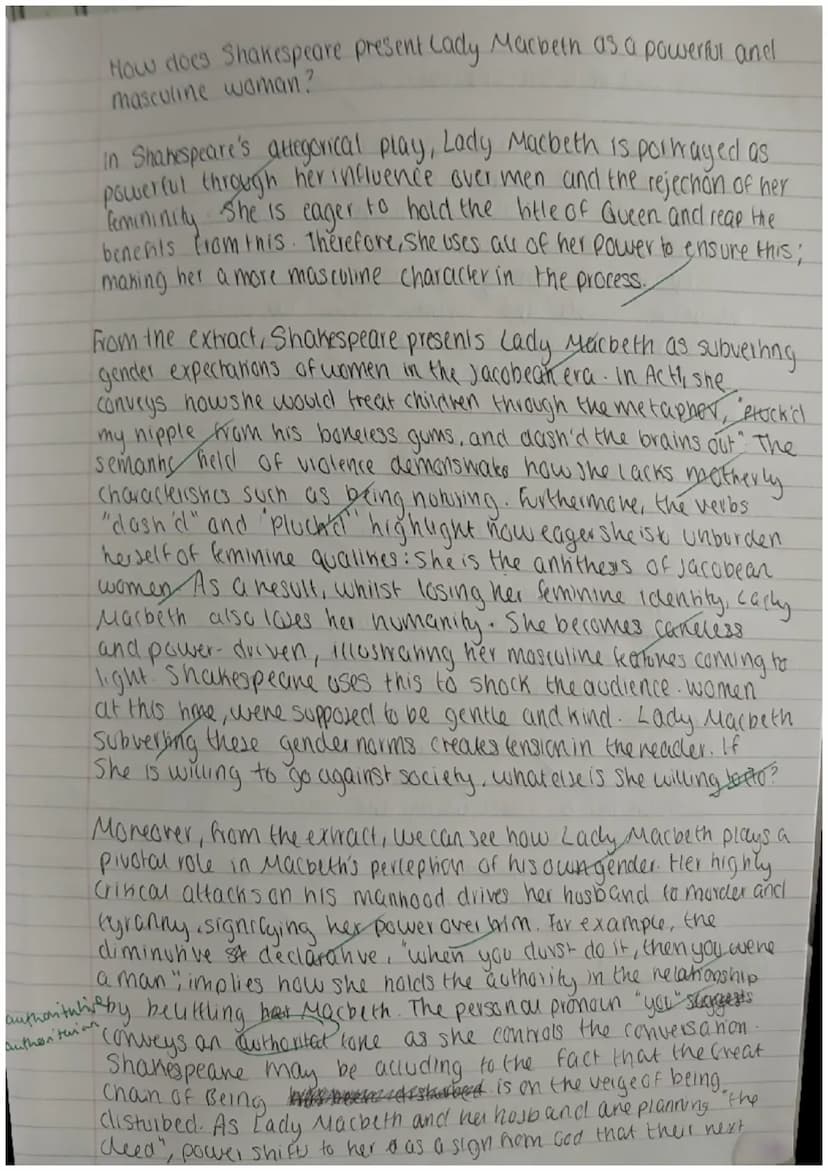 How does Shakespeare present Lady Macbeth as a powerful and
masculine woman?
In Shakespeare's allegorical play, Lady Macbeth is portrayed as
powerful through her influence over men and the rejection of her
femininity. She is eager to hold the title of Queen and reap the
benefits from this. Therefore, she uses all of her power to ensure this;
making her a more masculine character in the process.
From the extract, Shakespeare presents Lady Macbeth as subverting
gender expectations of women in the Jacobean era. In Act 1, she
conveys how she would treat children through the metaphor, "pluck'd
my nipple from his boneless gums, and dash'd the brains out". The
semantic field of violence demonstrate how she lacks motherly
characteristics such as being nuturing. Furthermore, the verbs
"dash'd" and "pluck'd" highlight how eager she is to unburden
herself of feminine qualities: she is the antithesis of Jacobean
women. As a result, whilst losing her feminine identity, Lady
Macbeth also loses her humanity. She becomes careless
and power-driven, illustrating her masculine features coming to
light. Shakespeare uses this to shock the audience. Women
at this time, were supposed to be gentle and kind. Lady Macbeth
subverting these gender norms creates tension in the reader. If
she is willing to go against society, what else is she willing to do?
Moreover, from the extract, we can see how Lady Macbeth plays a
pivotal role in Macbeth's perception of his own gender. Her highly
critical attacks on his manhood drives her husband to murder and
tyranny, signifying her power over him. For example, the
diminutive declarative, "when you durst do it, then you were
a man", implies how she holds the authority in the relationship
authoritative by belittling her Macbeth. The personal pronoun "you" suggests
authoritarian conveys an authoritat tone as she controls the conversation.
Shakespeare may be alluding to the fact that the Great
Chain of Being is on the verge of being
disturbed. As Lady Macbeth and her husband are planning "the
deed", power shifts to her as a sign from God that their next